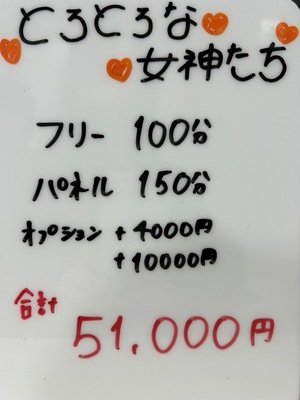 とろとろな
女神たち
フリー 100分
パネル 150分
オプション +4000円
+10000円
合計
51,000円